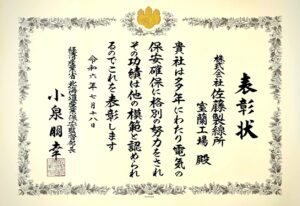 表彰状
株式会社佐藤製線所
室蘭工場 殿
貴社は多年にわたり電気の
保安確保に格別の努力をされ
その功績は他の模範と認められ
るのでこれを表彰します
令和六年七月十八日
経済産業省北海道産業保安監督部長
小泉朋幸